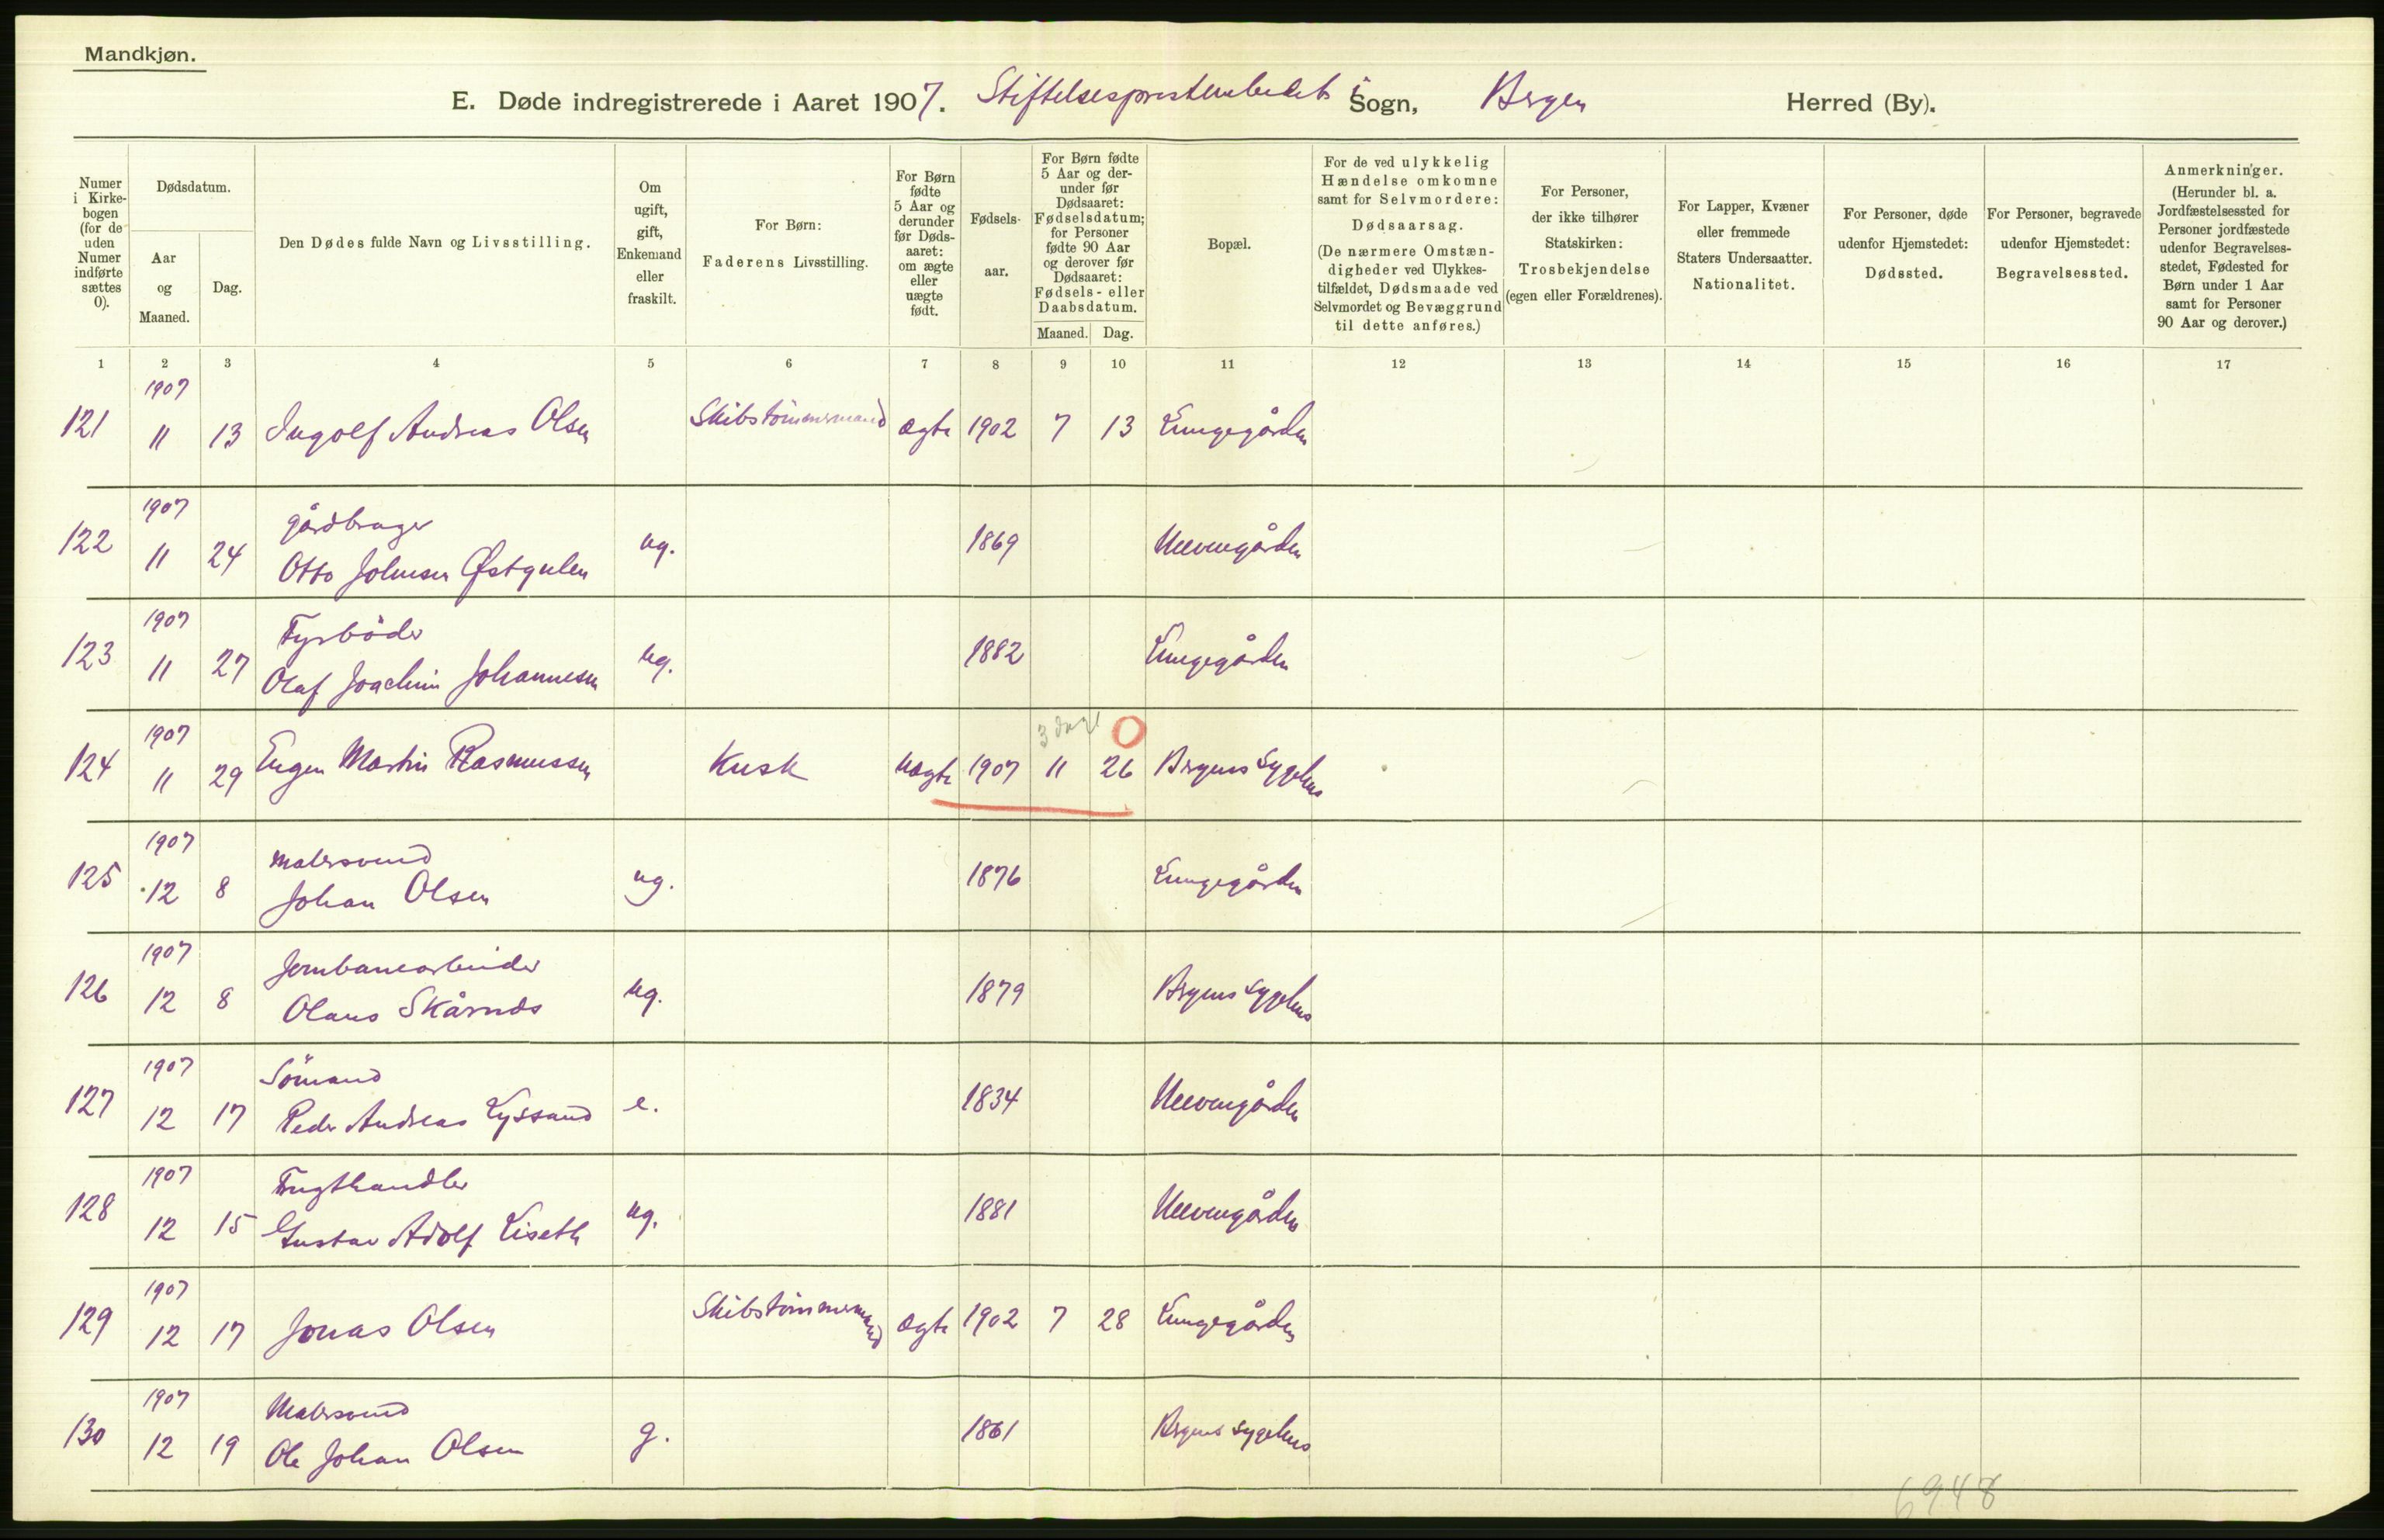 Mandkjøn.
E. Døde indregistrerede i Aaret 1907. Stiftelsesprestembedet i Sogn, Bergen Herred (By).
Numer
i Kirke-
bogen
(for de
uden
Numer
indførte
sættes
0).
Dødsdatum.
Aar
og
Maaned.
Dag.
Den Dødes fulde Navn og Livsstilling.
Om
ugift,
gift,
Enkemand
eller
fraskilt.
For Børn:
Faderens Livsstilling.
For Børn
fødte
5 Aar og
derunder
før Døds-
aaret:
om ægte
eller
uægte
født.
Fødsels-
aar.
For Børn fødte
5 Aar og der-
under før
Dødsaaret:
Fødselsdatum;
for Personer
fødte 90 Aar
og derover før
Dødsaaret:
Fødsels- eller
Daabsdatum.
Maaned. Dag.
Bopæl.
For de ved ulykkelig
Hændelse omkomne
samt for Selvmordere:
Dødsaarsag.
(De nærmere Omstæn-
digheder ved Ulykkes-
tilfældet, Dødsmaade ved
Selvmordet og Bevæggrund
til dette anføres.)
For Personer,
der ikke tilhører
Statskirken:
Trosbekjendelse
(egen eller Forældrenes).
For Lapper, Kvæner
eller fremmede
Staters Undersaatter.
Nationalitet.
For Personer, døde
udenfor Hjemstedet:
Dødssted.
For Personer, begravede
udenfor Hjemstedet:
Begravelsessted.
Anmerkninger.
(Herunder bl. a.
Jordfæstelsessted for
Personer jordfæstede
udenfor Begravelses-
stedet, Fødested for
Børn under 1 Aar
samt for Personer
90 Aar og derover.)
1 2 3 4 5 6 7 8 9 10 11 12 13 14 15 16 17
1907
121 11 13 Ingolf Andreas Olsen Skibstömmermand ægte 1902 7 13 Lungegården
1907 gårdbruger
122 11 24 Otto Johnsen Østgulen ug. 1869 Neevengården
1907 Fyrböder
123 11 27 Olaf Joachim Johannesen ug. 1882 Lungegården
1907 3 dage 0
124 11 29 Eugen Martin Rasmussen Kusk uægte 1907 11 26 Bergens Sygehus
1907 Malersvend
125 12 8 Johan Olsen ug. 1876 Lungegården
1907 Jernbanearbeider
126 12 8 Olaus Skårnds ug. 1879 Bergens Sygehus
1907 Sömand
127 12 17 Peder Andreas Lyssand e. 1834 Neevengården
1907 Frugthandler
128 12 15 Gustav Adolf Liseth ug. 1881 Neevengården
1907
129 12 17 Jonas Olsen Skibstömmermand ægte 1902 7 28 Lungegården
1907 Malersvend
130 12 19 Ole Johan Olsen g. 1861 Bergens Sygehus
6948